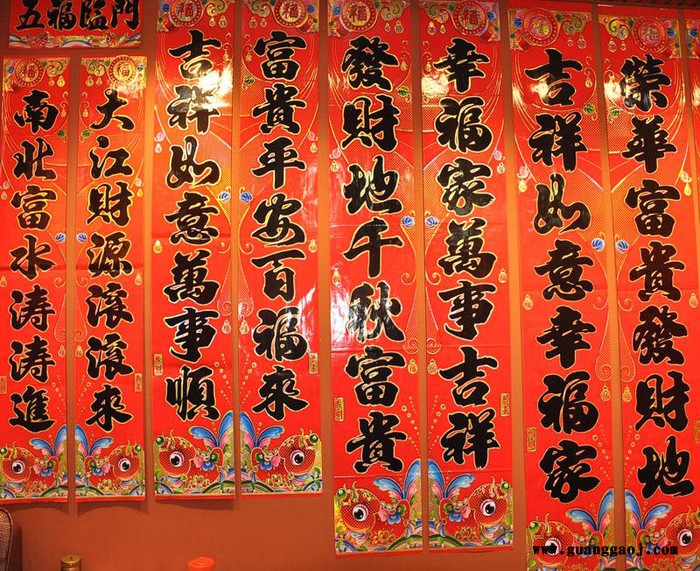 五福臨門
福
榮華富貴發財地
福
吉祥如意幸福家
福
幸福家萬事吉祥
福
發財地千秋富貴
福
富貴平安百福來
福
吉祥如意萬事順
福
大江財源滚滚來
福
南北富水涛涛進
www.guanggaoj.com